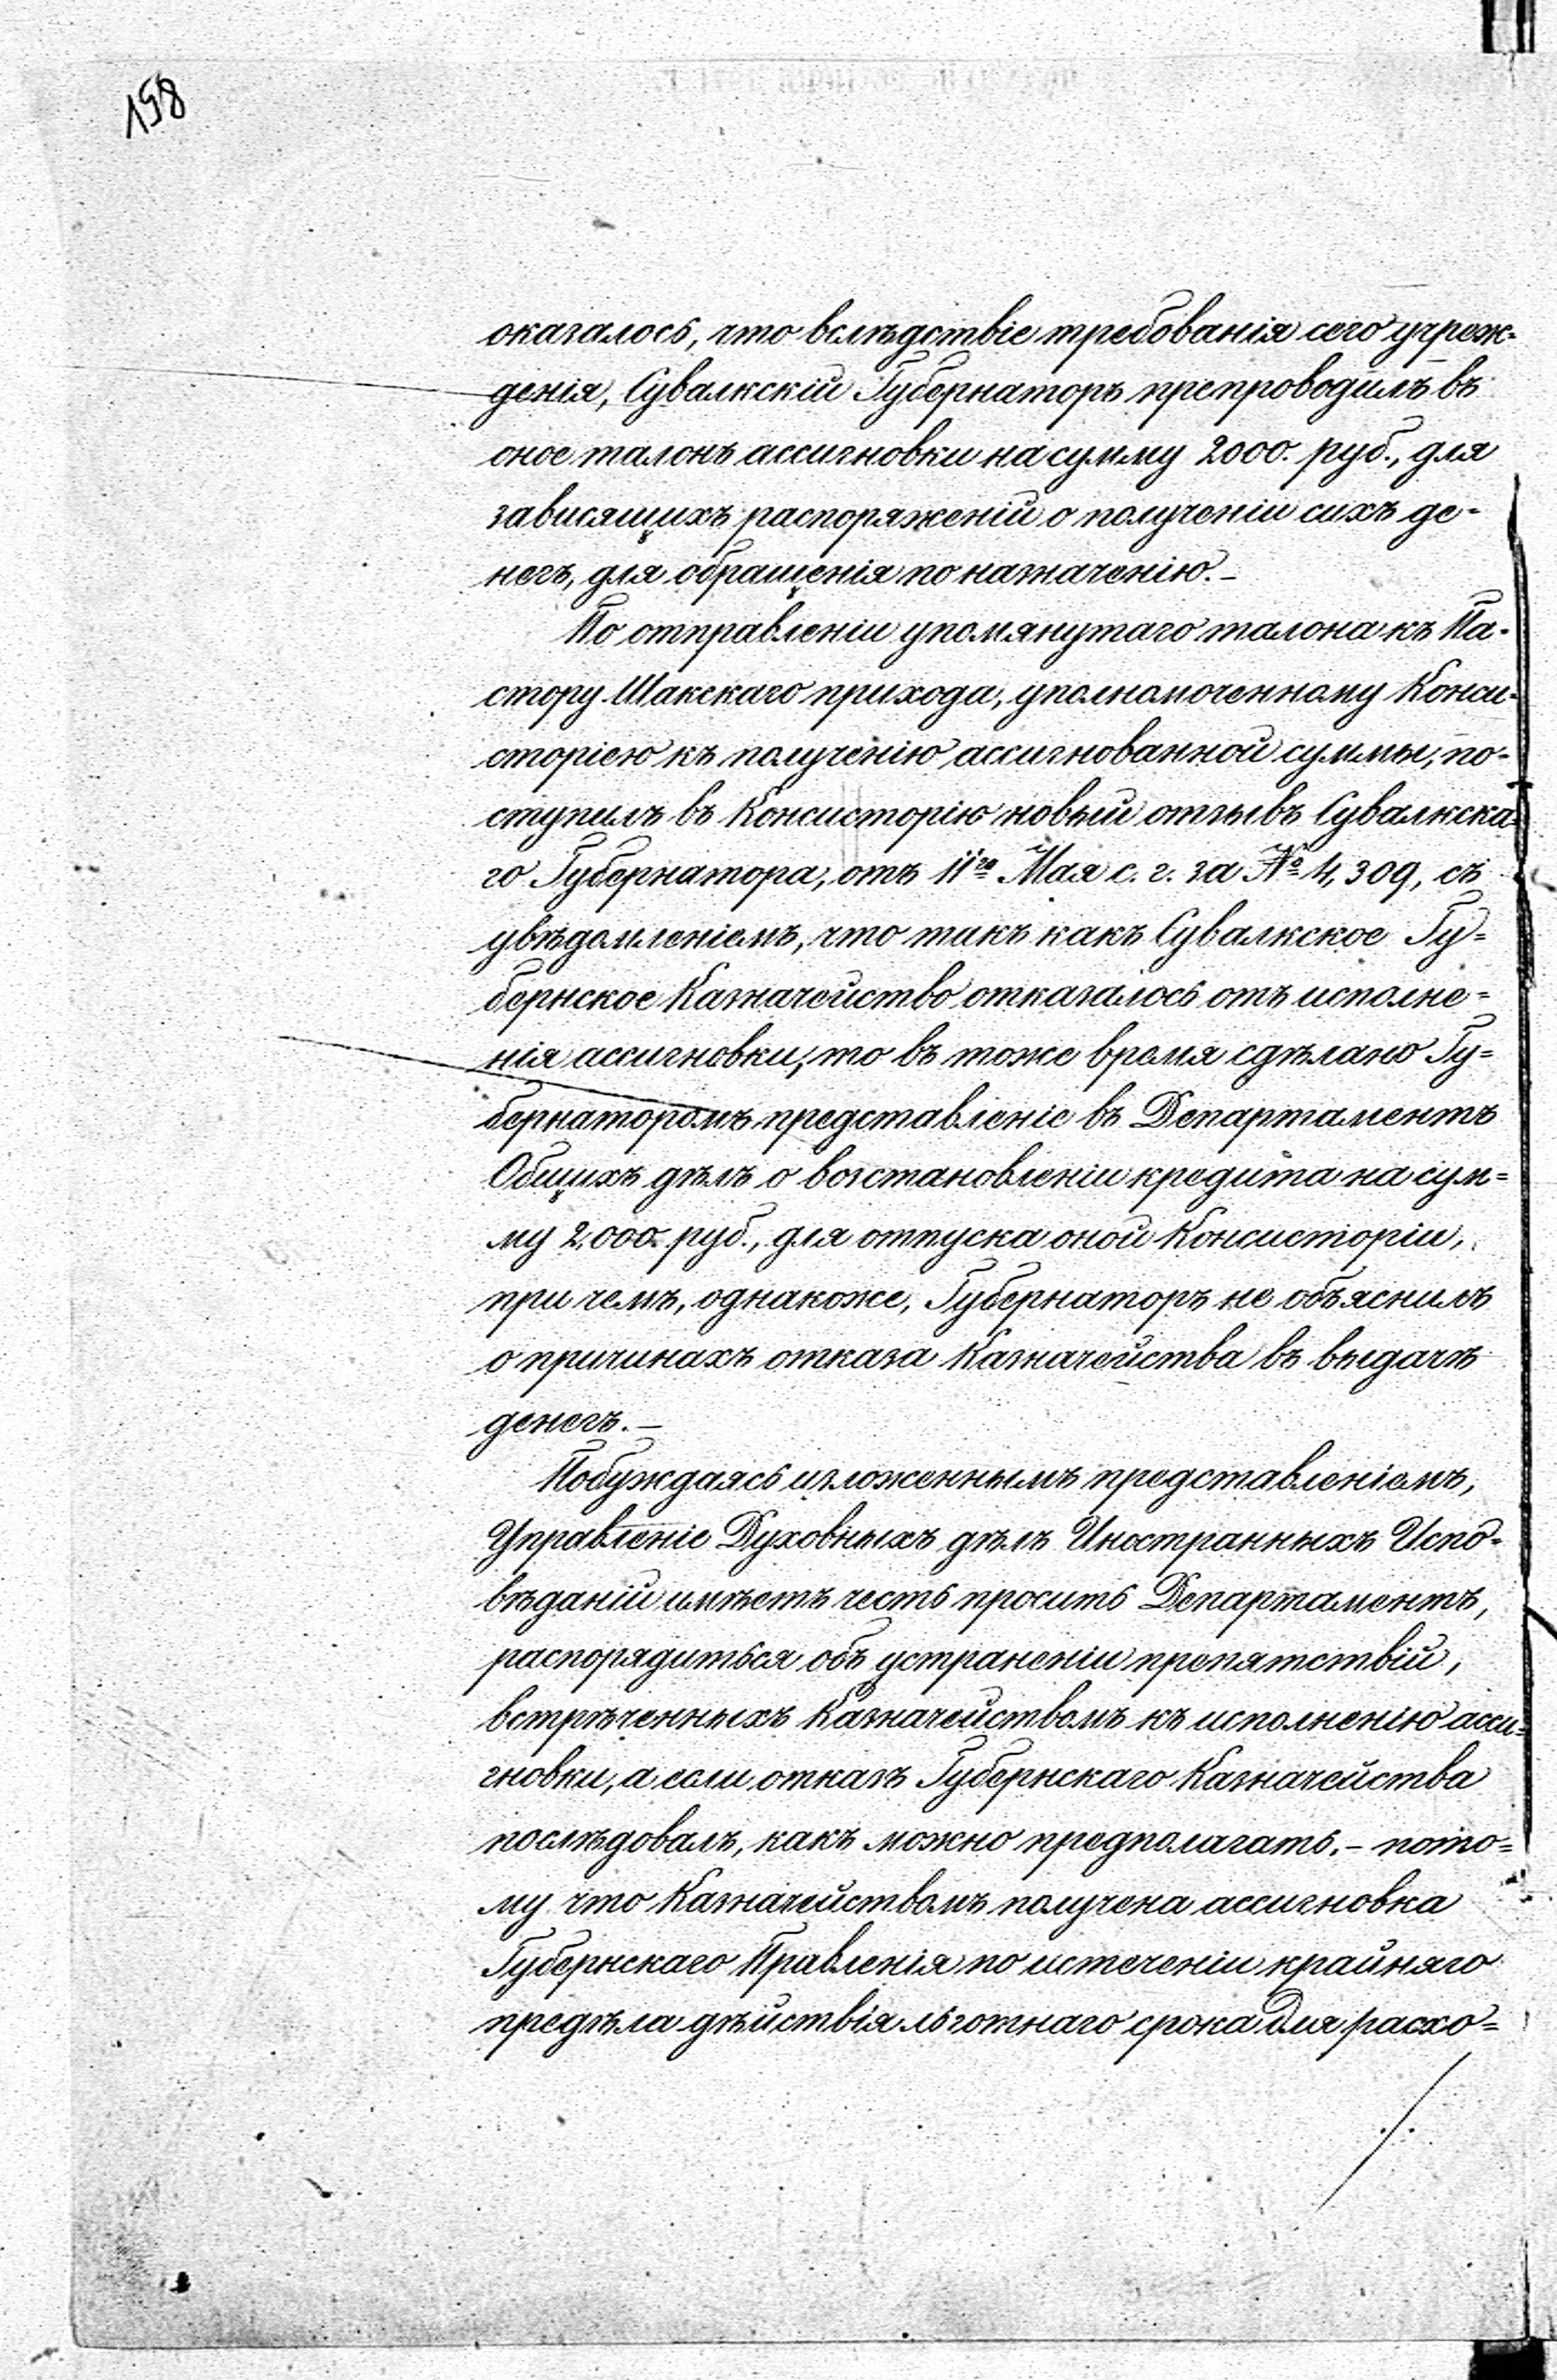 158
оказалось, что вслѣдствіе требованія сего учреж=
денія, Сувалкскій Губернаторъ препроводилъ въ
оное талонъ ассигновки на сумму 2000. руб., для
зависящихъ распоряженій о полученіи сихъ де=
негъ, для обращенія по назначенію.—
По отправленіи упомянутаго талона къ Па=
стору Шакскаго прихода, уполномоченному Конси=
сторіею къ полученію ассигнованной суммы, по=
ступилъ въ Консисторію новый отзывъ Сувалкска=
го Губернатора, отъ 11го Мая с. г. за № 4,309, съ
увѣдомленіемъ, что такъ какъ Сувалкское Гу=
бернское Казначейство отказалось отъ исполне=
нія ассигновки, то въ тоже время сдѣлано Гу=
бернаторомъ представленіе въ Департаментъ
Общихъ дѣлъ о возстановленіи кредита на сум=
му 2,000. руб., для отпуска оной Консисторіи,
при чемъ, однакоже, Губернаторъ не объяснилъ
о причинахъ отказа Казначейства въ выдачѣ
денегъ.—
Побуждаясь изложеннымъ представленіемъ,
Управленіе Духовныхъ дѣлъ Иностранныхъ Испо=
вѣданій имѣетъ честь просить Департаментъ,
распорядиться объ устраненіи препятствій,
встрѣченныхъ Казначействомъ къ исполненію асси=
гновки, а если отказъ Губернскаго Казначейства
послѣдовалъ, какъ можно предполагать,— пото=
му что Казначействомъ получена ассигновка
Губернскаго Правленія по истеченіи крайняго
предѣла дѣйствія льготнаго срока для расхо=
./.